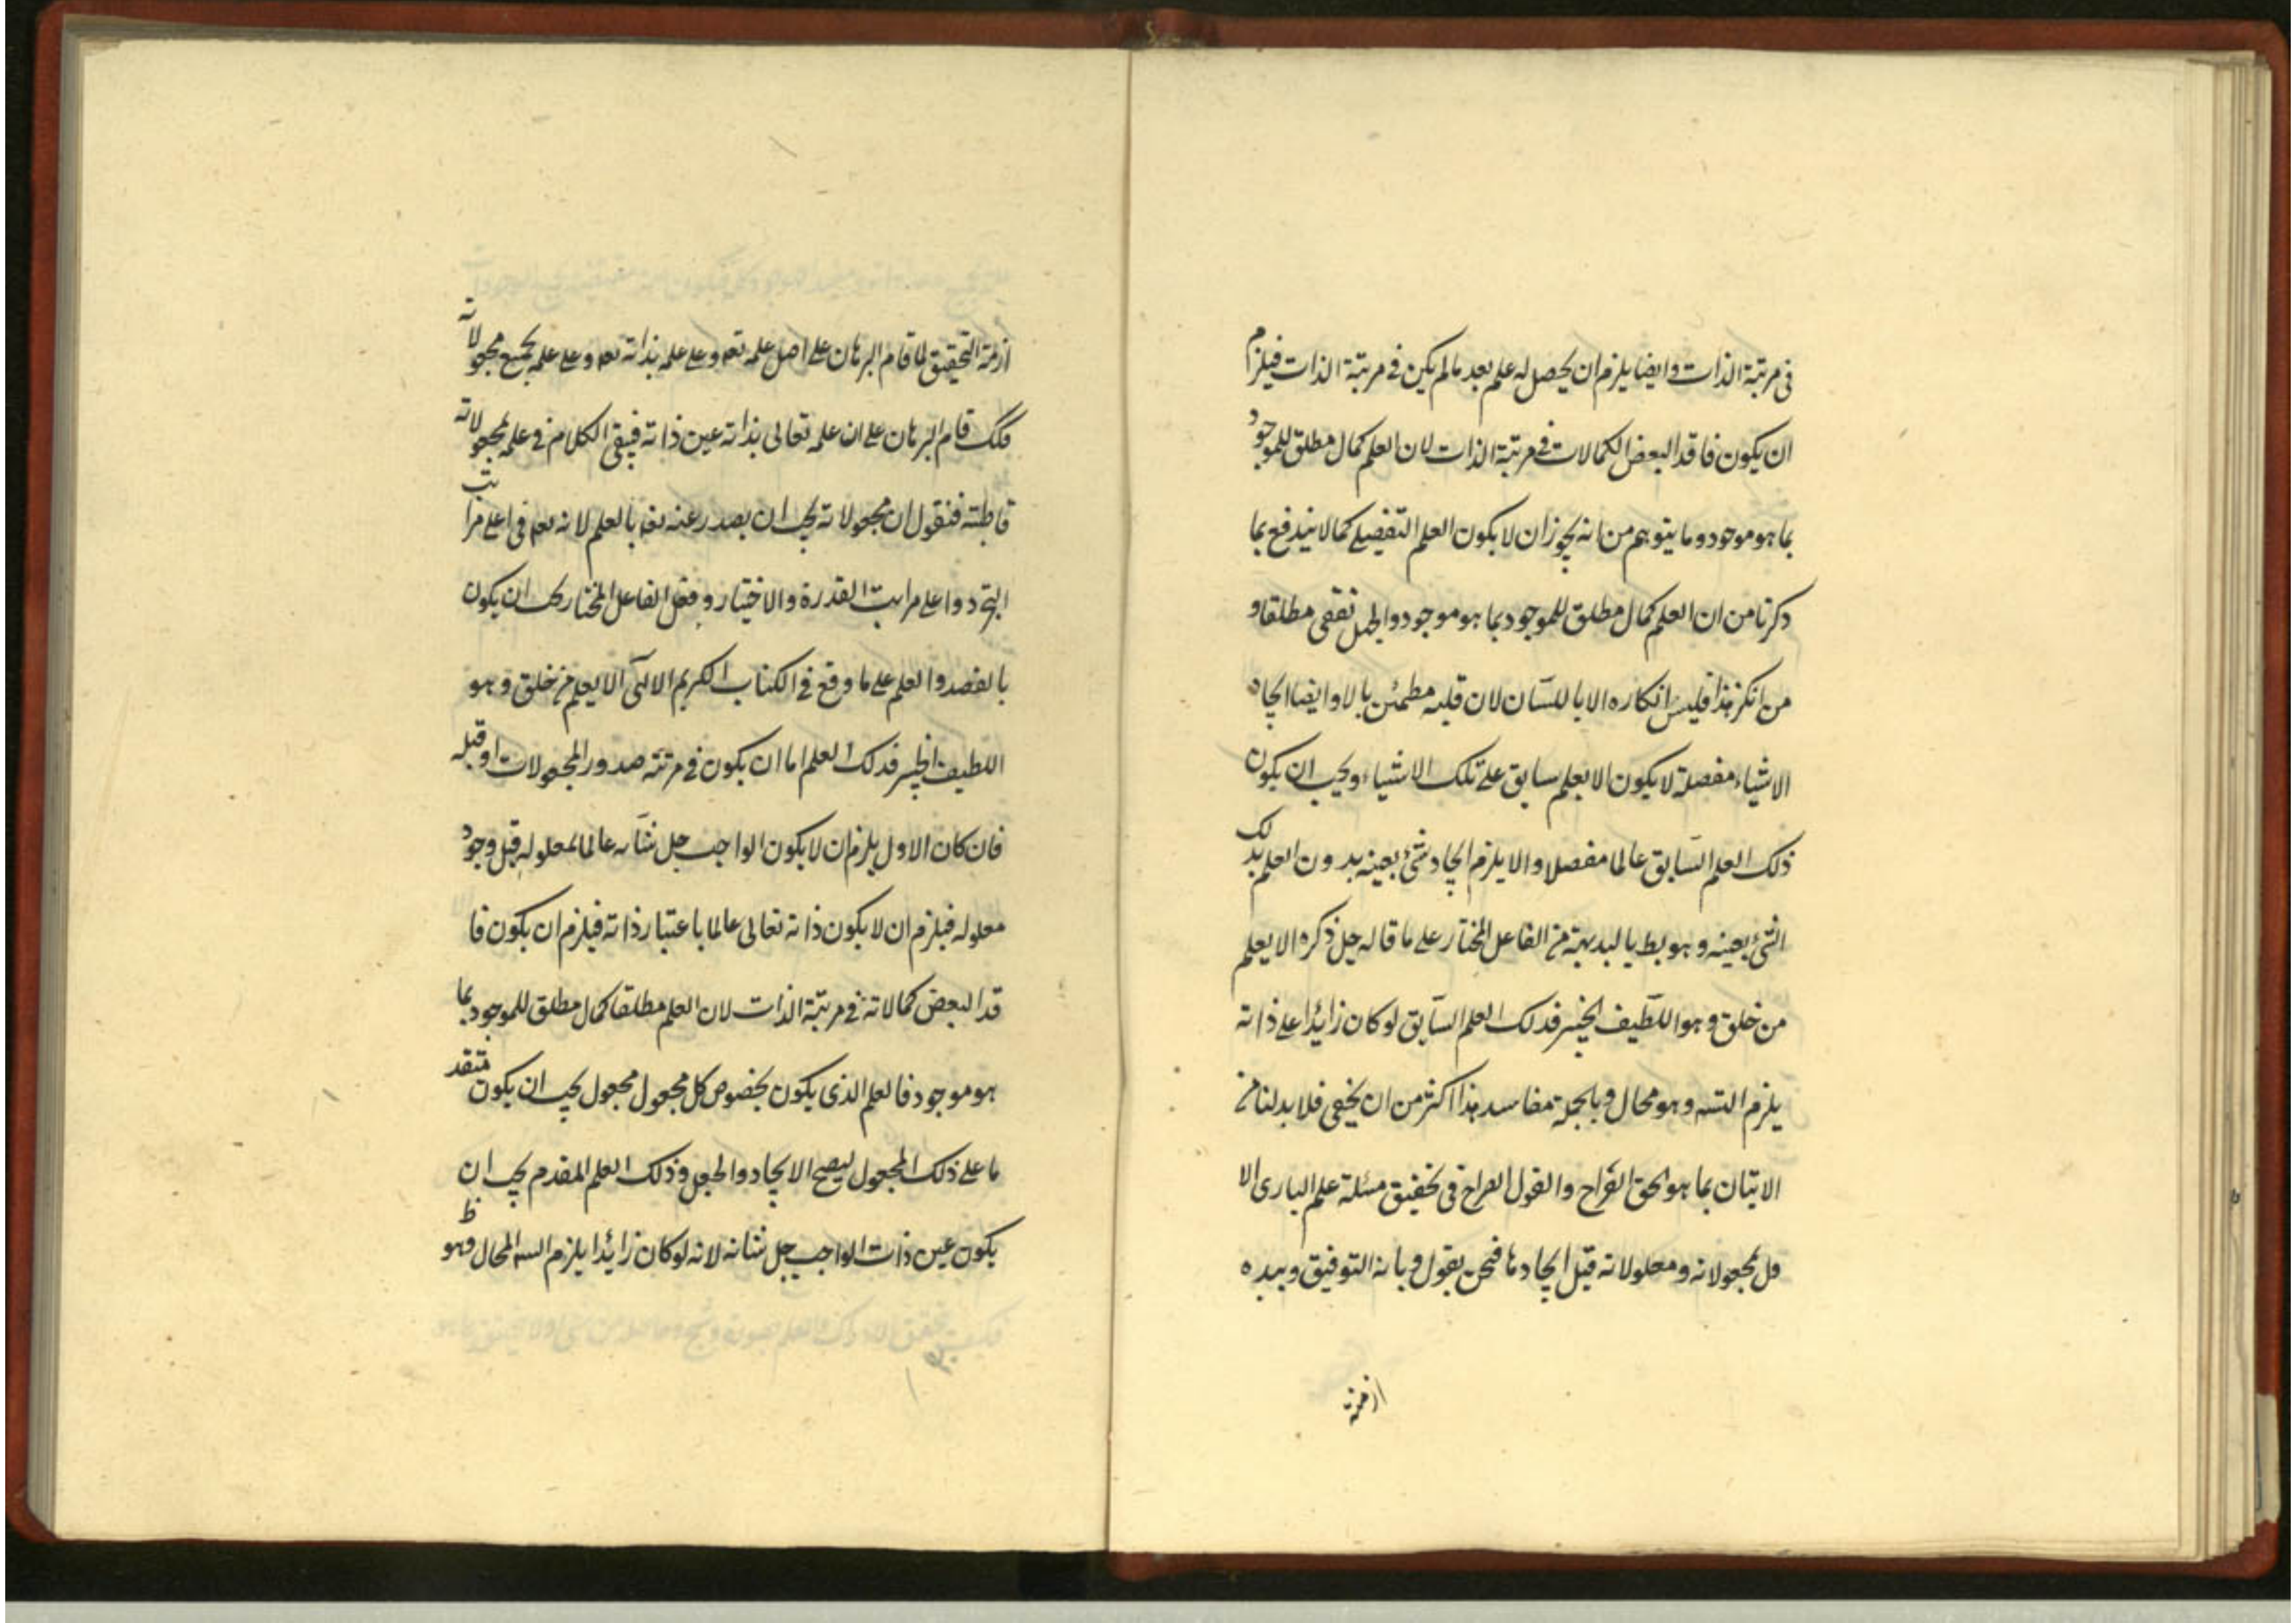 فى مرتبة الذات وايضا يلزم ان يحصل له علم بعد ما لم يكن فى مرتبة الذات فيلزم
ان يكون فاقد البعض الكمالات فى مرتبة الذات لان العلم كمال مطلق للموجود
بما هو موجود وما يتوهم من انه يجوز ان لا يكون العلم التفصيلى كمالا يندفع بما
ذكرنا من ان العلم كمال مطلق للموجود بما هو موجود والجهل نقص مطلقا و
من انكر هذا فليس انكاره الا باللسان لان قلبه مطمئن بالا وايضا ايجاد
الاشياء مفصلة لا يكون الا بعلم سابق على تلك الاشياء ويجب ان يكون
ذلك العلم السابق عالما مفصلا والا يلزم ايجاد شئ بعينه بدون العلم بذلك
الشئ بعينه وهو بط بالبديهة من الفاعل المختار على ما قاله جل ذكره الا يعلم
من خلق وهو اللطيف الخبير فذلك العلم السابق لو كان زايدا على ذاته
يلزم التسه وهو محال وبالجملة مفاسد هذا اكثر من ان يخفى فلا بد لنا من
الاتيان بما هو الحق القراح والقول الصراح فى تحقيق مسئلة علم البارى الا
ول بمجعولاته ومعلولاته قبل ايجادها فنحن نقول وبالله التوفيق وبيده
ازمة
ازمة التحقيق لما قام البرهان على اصل علمه تعه وعلى علمه بذاته تعه وعلى علمه بجميع مجعولاته
فكك قام البرهان على ان علمه تعالى بذاته عين ذاته فيبقى الكلام فى علمه بمجعولاته
قاطبته فنقول ان مجعولاته يجب ان يصدر عنه تعه بالعلم لانه تعه فى اعلى مراتب
التجرد واعلى مراتب القدرة والاختيار وفعل الفاعل المختار يجب ان يكون
بالقصد والعلم على ما وقع فى الكتاب الكريم الالهى الا يعلم من خلق وهو
اللطيف الخبير فذلك العلم اما ان يكون فى مرتبه صدور المجعولات او قبله
فان كان الاول يلزم ان لا يكون الواجب جل شانه عالما بمعلوله قبل وجود
معلوله فيلزم ان لا يكون ذاته تعالى عالما باعتبار ذاته فيلزم ان يكون فا
قد البعض كمالاته فى مرتبة الذات لان العلم مطلقا كمال مطلق للموجود بما
هو موجود فالعلم الذى يكون بخصوص كل مجعول مجعول يجب ان يكون متقد
ما على ذلك المجعول ليصح الايجاد والجعل وذلك العلم المقدم يجب ان
يكون عين ذات الواجب جل شانه لانه لو كان زايدا يلزم التسه المحال وهو ظ